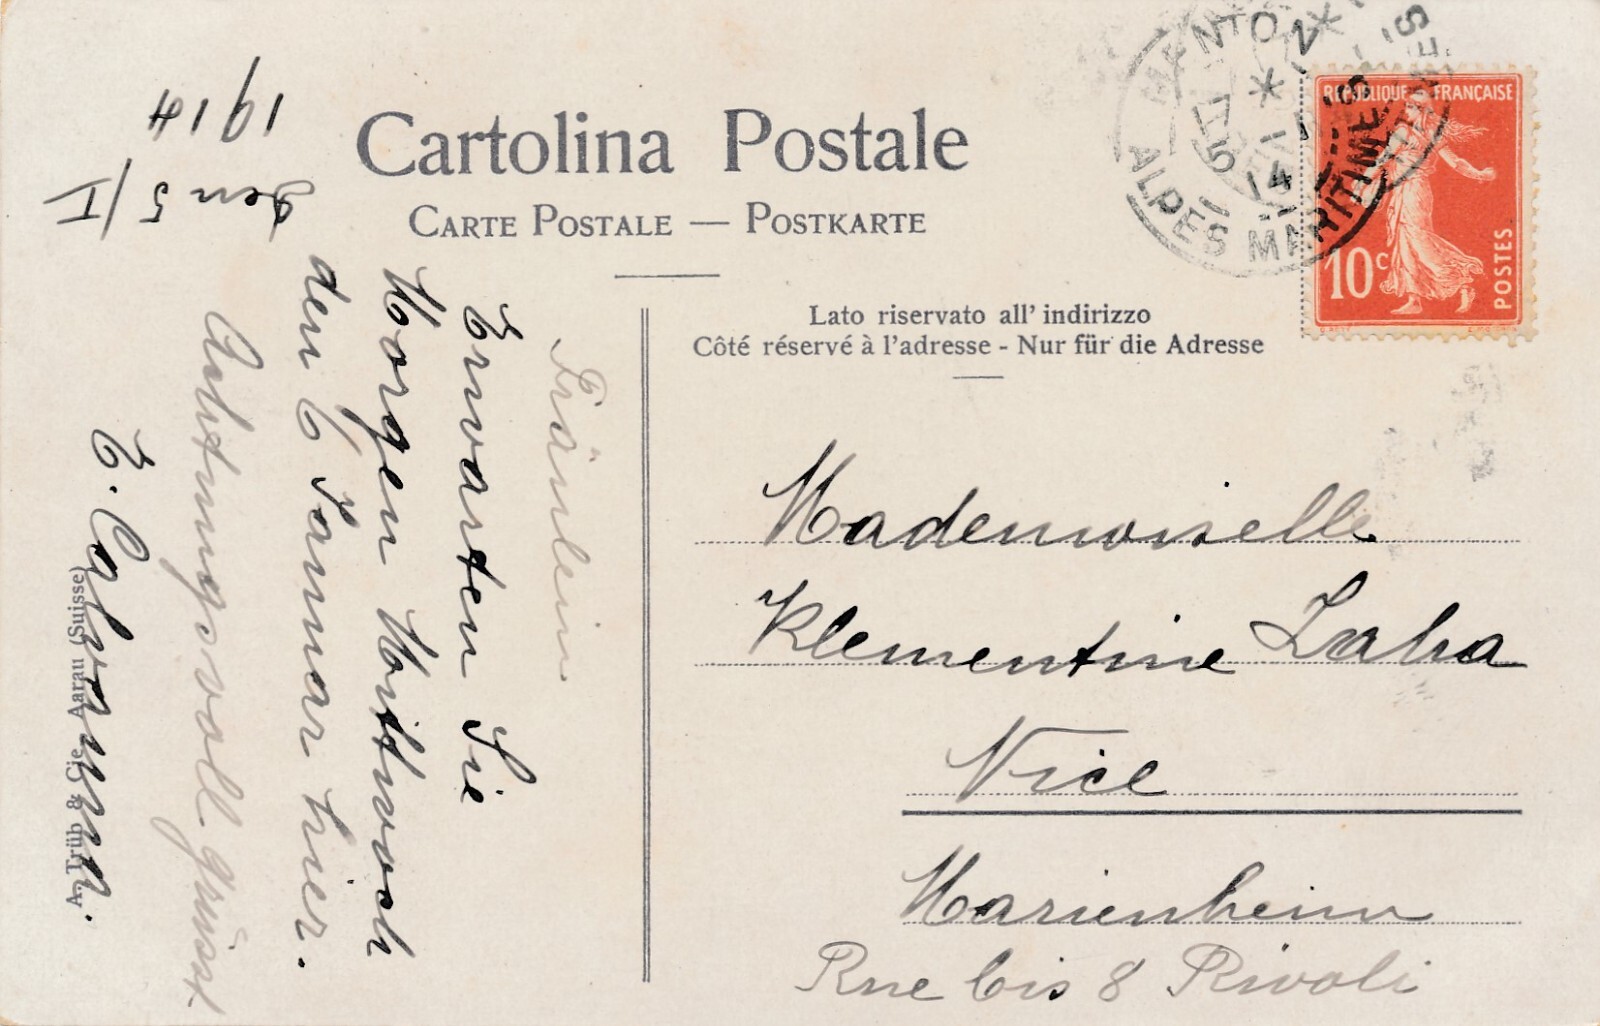 Cartolina Postale
CARTE POSTALE — POSTKARTE
Lato riservato all' indirizzo
Côté réservé à l'adresse - Nur für die Adresse
MENTON
17 5
1 14
ALPES MARITIMES
REPUBLIQUE FRANÇAISE
10c
POSTES
1914
den 5/I
Fräulein
Erwarten Sie
Morgen Mittwoch
den 6 Januar hier.
Achtungsvoll grüsst
E. Calvann.
Mademoiselle
Klementine Laha
Nice
Marienheim
Rue bis 8 Rivoli
A. Trüb & Cie Aarau (Suisse)